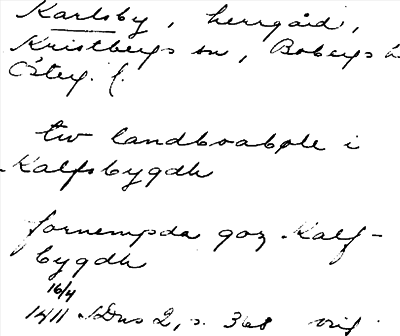 Karlsby, herrgård,
Kristbergs sn, Bobergs h
Österg. l.
tw landboabøle i
Kalfsbygdh
fornempda goz Kalf-
bygdh
16/4
1411 SDns 2, s. 368 orig.